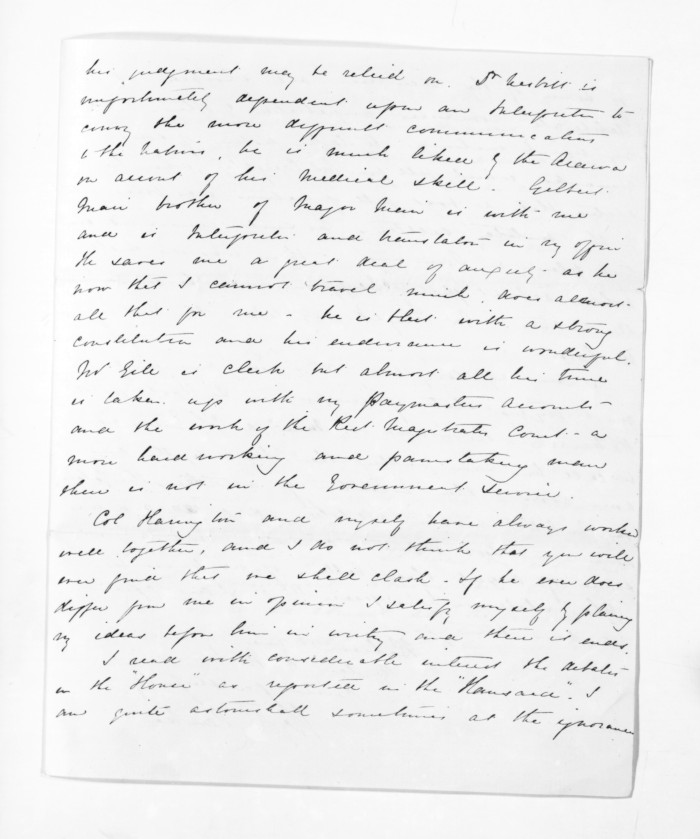 his judgment may be relied on. Dr Nesbitt is
unfortunately dependent upon an Interpreter to
convey the more difficult communications
to the Natives, he is much liked by the Arawa
on account of his medical skill. Gilbert
Mair brother of Major Mair is with me
and is Interpreter and translator in my office
He saves me a great deal of anxiety as he
now that I cannot travel much, does almost
all that for me - he is blest with a strong
constitution and his endurance is wonderful.
Mr Gill is clerk but almost all his time
is taken up with my Paymasters accounts
and the work of the Resdt. Magistrates Court - a
more hardworking and painstaking man
there is not in the Government Service.
Col Harington and myself have always worked
well together, and I do not think that you will
ever find that we shall clash - If he ever does
differ from me in opinion I satisfy myself by placing
my ideas before him in writing and there it ends.
I read with considerable interest the debates
in the "House" as reported in the "Hansard". I
am quite astonished sometimes at the ignorance